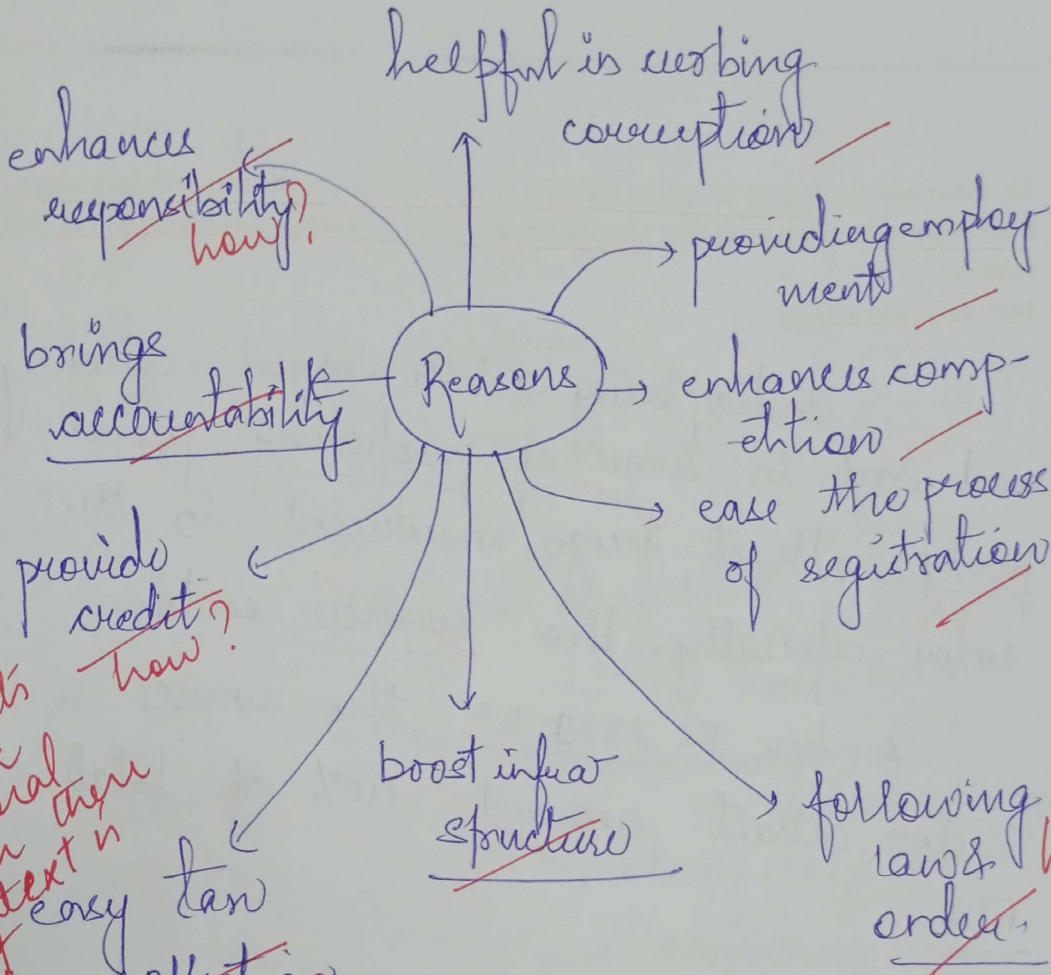 helpful in curbing
corruption
enhances
responsibility?
how?
providing employ
ment
brings
accountability
Reasons
enhances comp-
etition
ease the process
of registration
provide
credit?
how?
boost infra
structure
following
law &
order.
there
text
easy tax